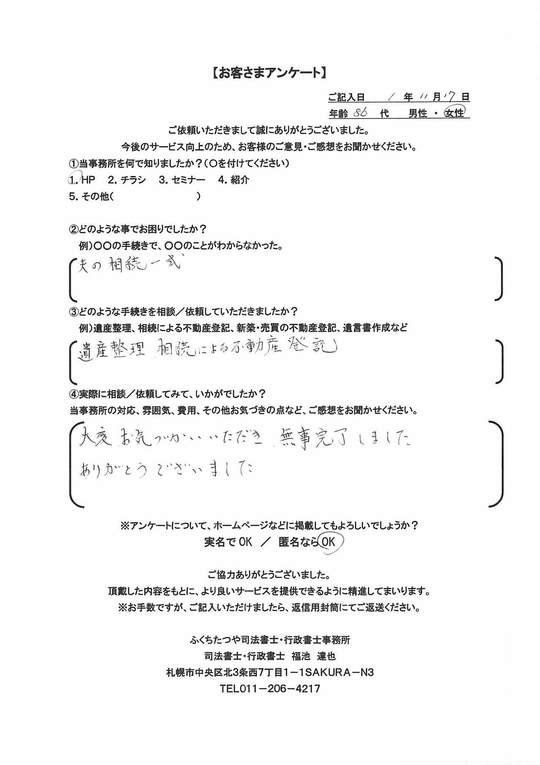 【お客さまアンケート】
ご記入日 1 年 11 月 17 日
年齢 80 代 男性 ・ 女性
ご依頼いただきまして誠にありがとうございました。
今後のサービス向上のため、お客様のご意見・ご感想をお聞かせください。
①当事務所を何で知りましたか?(〇を付けてください)
1. HP 2. チラシ 3. セミナー 4. 紹介
5. その他( )
②どのような事でお困りでしたか?
例)〇〇の手続きで、〇〇のことがわからなかった。
夫の相続一式
③どのような手続きを相談/依頼していただきましたか?
例)遺産整理、相続による不動産登記、新築・売買の不動産登記、遺言書作成など
遺産整理 相続による不動産登記
④実際に相談/依頼してみて、いかがでしたか?
当事務所の対応、雰囲気、費用、その他お気づきの点など、ご感想をお聞かせください。
大変お気づかいいただき、無事完了しました
ありがとうございました
※アンケートについて、ホームページなどに掲載してもよろしいでしょうか?
実名でOK / 匿名ならOK
ご協力ありがとうございました。
頂戴した内容をもとに、より良いサービスを提供できるように精進してまいります。
※お手数ですが、ご記入いただけましたら、返信用封筒にてご返送ください。
ふくちたつや司法書士・行政書士事務所
司法書士・行政書士 福池 達也
札幌市中央区北3条西7丁目1-1SAKURA-N3
TEL011-206-4217